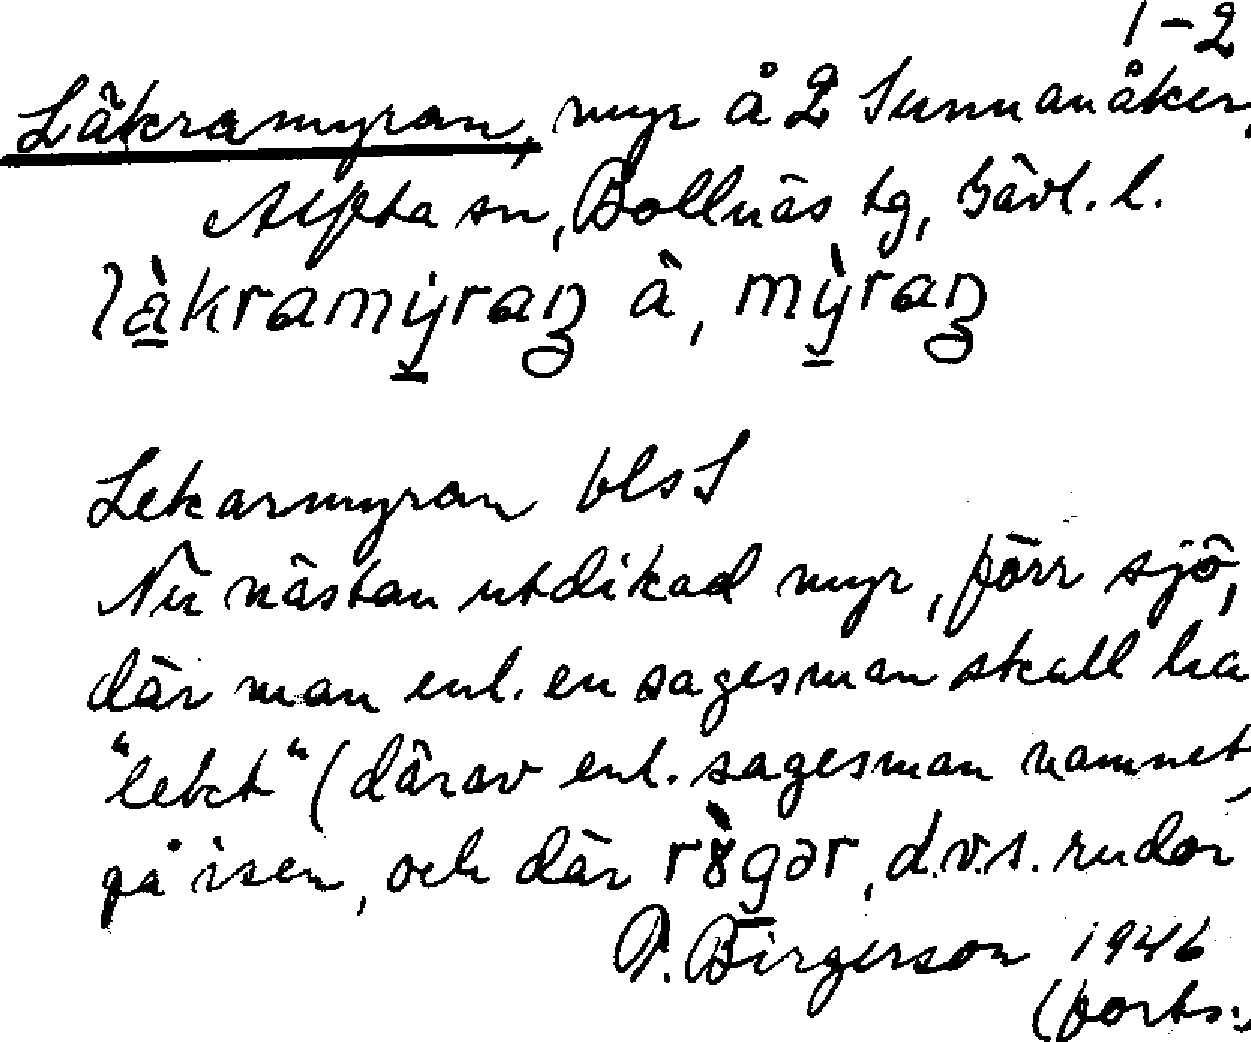 1-2
Läkramyran, myr å 2 Sunnanåker,
Alfta sn, Bollnäs tg, Gävl. l.
là̠kramỳ̠raꞤ à, mỳ̠raꞤ
Lekarmyran bls S
Nu nästan utdikad myr, förr sjö,
där man enl. en sagesman skall ha
"lekt" (därav enl. sagesman namnet)
på isen, och där rògər, d.v.s. rudor
P. Birgerson 1946
(forts.)